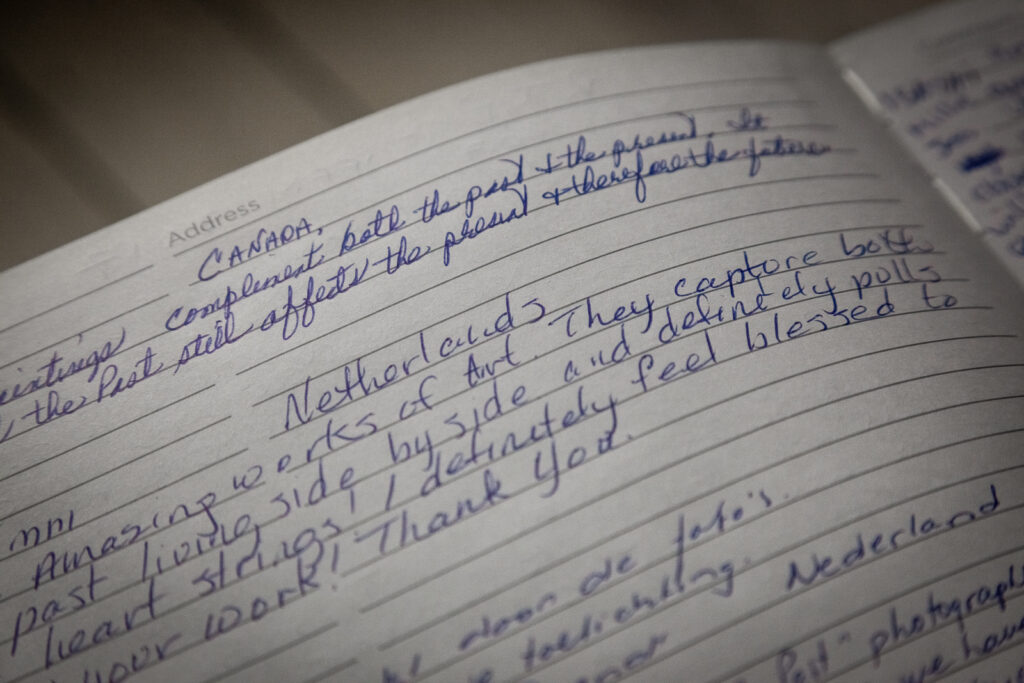 Address
CANADA,
complement both the past & the present. It
, the Past still affects the present & therefore the future
Netherlands
Amazing works of Art. They capture both
past living side by side and definetely pulls
heart strings! I definetely feel blessed to
your work! Thank You.
door de foto's.
toelichting. Nederland
Past" photograph
we have